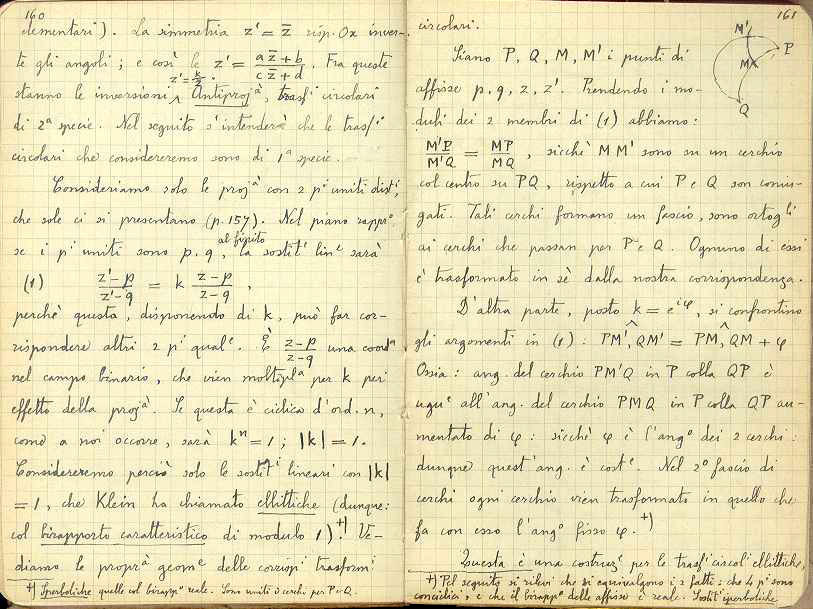 160
elementari). La simmetria z' = z̄ risp. Ox inver-
te gli angoli; e così le z' = (a z̄ + b)/(c z̄ + d). Fra queste
z' = k/z̄.
stanno le inversioni. Antiprojᵃ, trasfⁱ circolari
di 2ᵃ specie. Nel seguito s'intenderà che le trasfⁱ
circolari che considereremo sono di 1ᵃ specie.
Consideriamo solo le projᵃ con 2 pⁱ uniti distⁱ,
che sole ci si presentano (p. 157). Nel piano rapprᵒ
al finito
se i pⁱ uniti sono p, q, la sostitᵉ linᵉ sarà
(1) (z'-p)/(z'-q) = k (z-p)/(z-q) ,
perchè questa, disponendo di k, può far cor-
rispondere altri 2 pⁱ qualᵉ. È (z-p)/(z-q) una coordᵃ
nel campo binario, che vien moltiplᵃ per k per
effetto della projᵃ. Se questa è ciclica d'ord. n,
come a noi occorre, sarà kⁿ = 1; |k| = 1.
Considereremo perciò solo le sostitⁱ lineari con |k|
= 1, che Klein ha chiamato ellittiche (dunque:
col birapporto caratteristico di modulo 1).⁺⁾ Ve-
diamo le proprᵃ geomᵉ delle corrispⁱ trasformⁱ
+) Iperboliche quelle col birappᵒ reale. Sono uniti i cerchi per P e Q.
161
circolari.
Siano P, Q, M, M' i punti di
affisse p, q, z, z'. Prendendo i mo-
duli dei 2 membri di (1) abbiamo:
M'P/M'Q = MP/MQ , sicchè M M' sono su un cerchio
col centro su PQ, rispetto a cui P e Q son coniu-
gati. Tali cerchi formano un fascio, sono ortogˡⁱ
ai cerchi che passan per P e Q. Ognuno di essi
è trasformato in sè dalla nostra corrispondenza.
D'altra parte, posto k = e^{iφ}, si confrontino
gli argomenti in (1): PM',^QM' = PM,^QM + φ
Ossia: ang. del cerchio PM'Q in P colla QP è
ugᵉ all'ang. del cerchio PMQ in P colla QP au-
mentato di φ: sicchè φ è l'angᵒ dei 2 cerchi:
dunque quest'ang. è costᵉ. Nel 2º fascio di
cerchi ogni cerchio vien trasformato in quello che
fa con esso l'angᵒ fisso φ.⁺⁾
Questa è una costruzᵉ per le trasfⁱ circolⁱ ellittiche,
+) Pel seguito si rilevi che si equivalgono i 2 fatti: che 4 pⁱ sono
conciclici, e che il birappᵒ delle affisse è reale. Sostitⁱ iperboliche
M'
P
M
Q